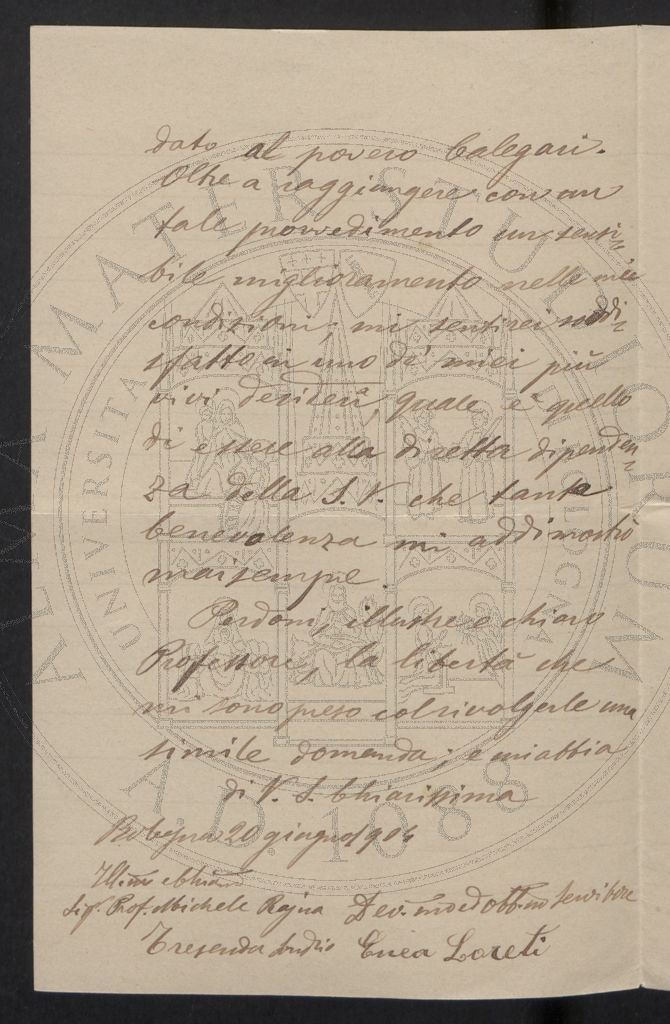 dato al povero Calegari.
Oltre a raggiungere con un
tale provvedimento un sensi=
bile miglioramento nelle mie
condizioni, mi sentirei soddi=
sfatto in uno de' miei più
vivi desiderî, quale è quello
di essere alla diretta dipenden=
za della S. V. che tanta
benevolenza mi addimostrò
maisempre.
Perdoni, illustre e chiaro
Professore, la libertà che
mi sono preso col rivolgerle una
simile domanda; e mi abbia
di V. S. Chiarissima
Bologna 20 giugno 1904
Ill.mo e Ch.mo
Sig. Prof. Michele Rajna Dev.mo ed obb.mo Servitore
Enea Loreti
ALMA MATER STUDIORUM
UNIVERSITÀ DI BOLOGNA
A.D. 1088